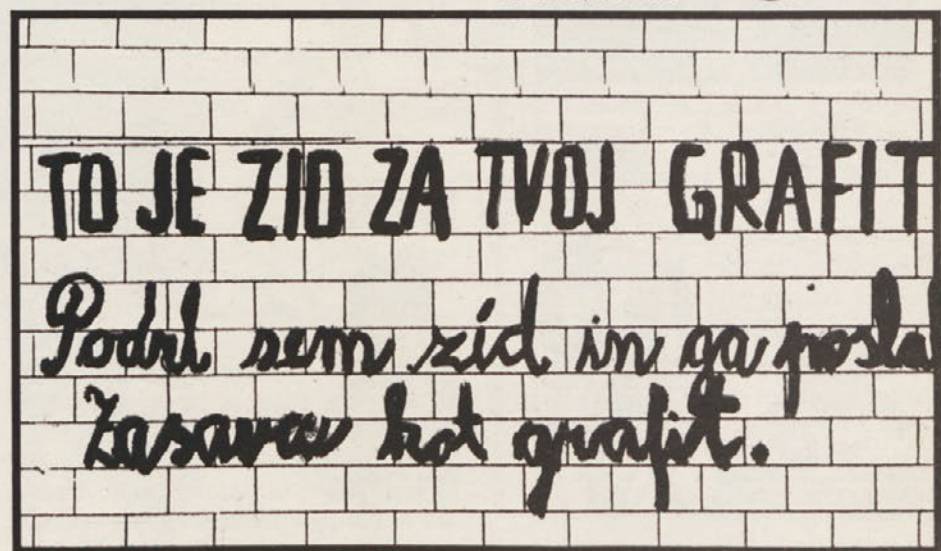 TO JE ZID ZA TVOJ GRAFIT
Podrl sem zid in ga poslal
Zasavcu kot grafit.